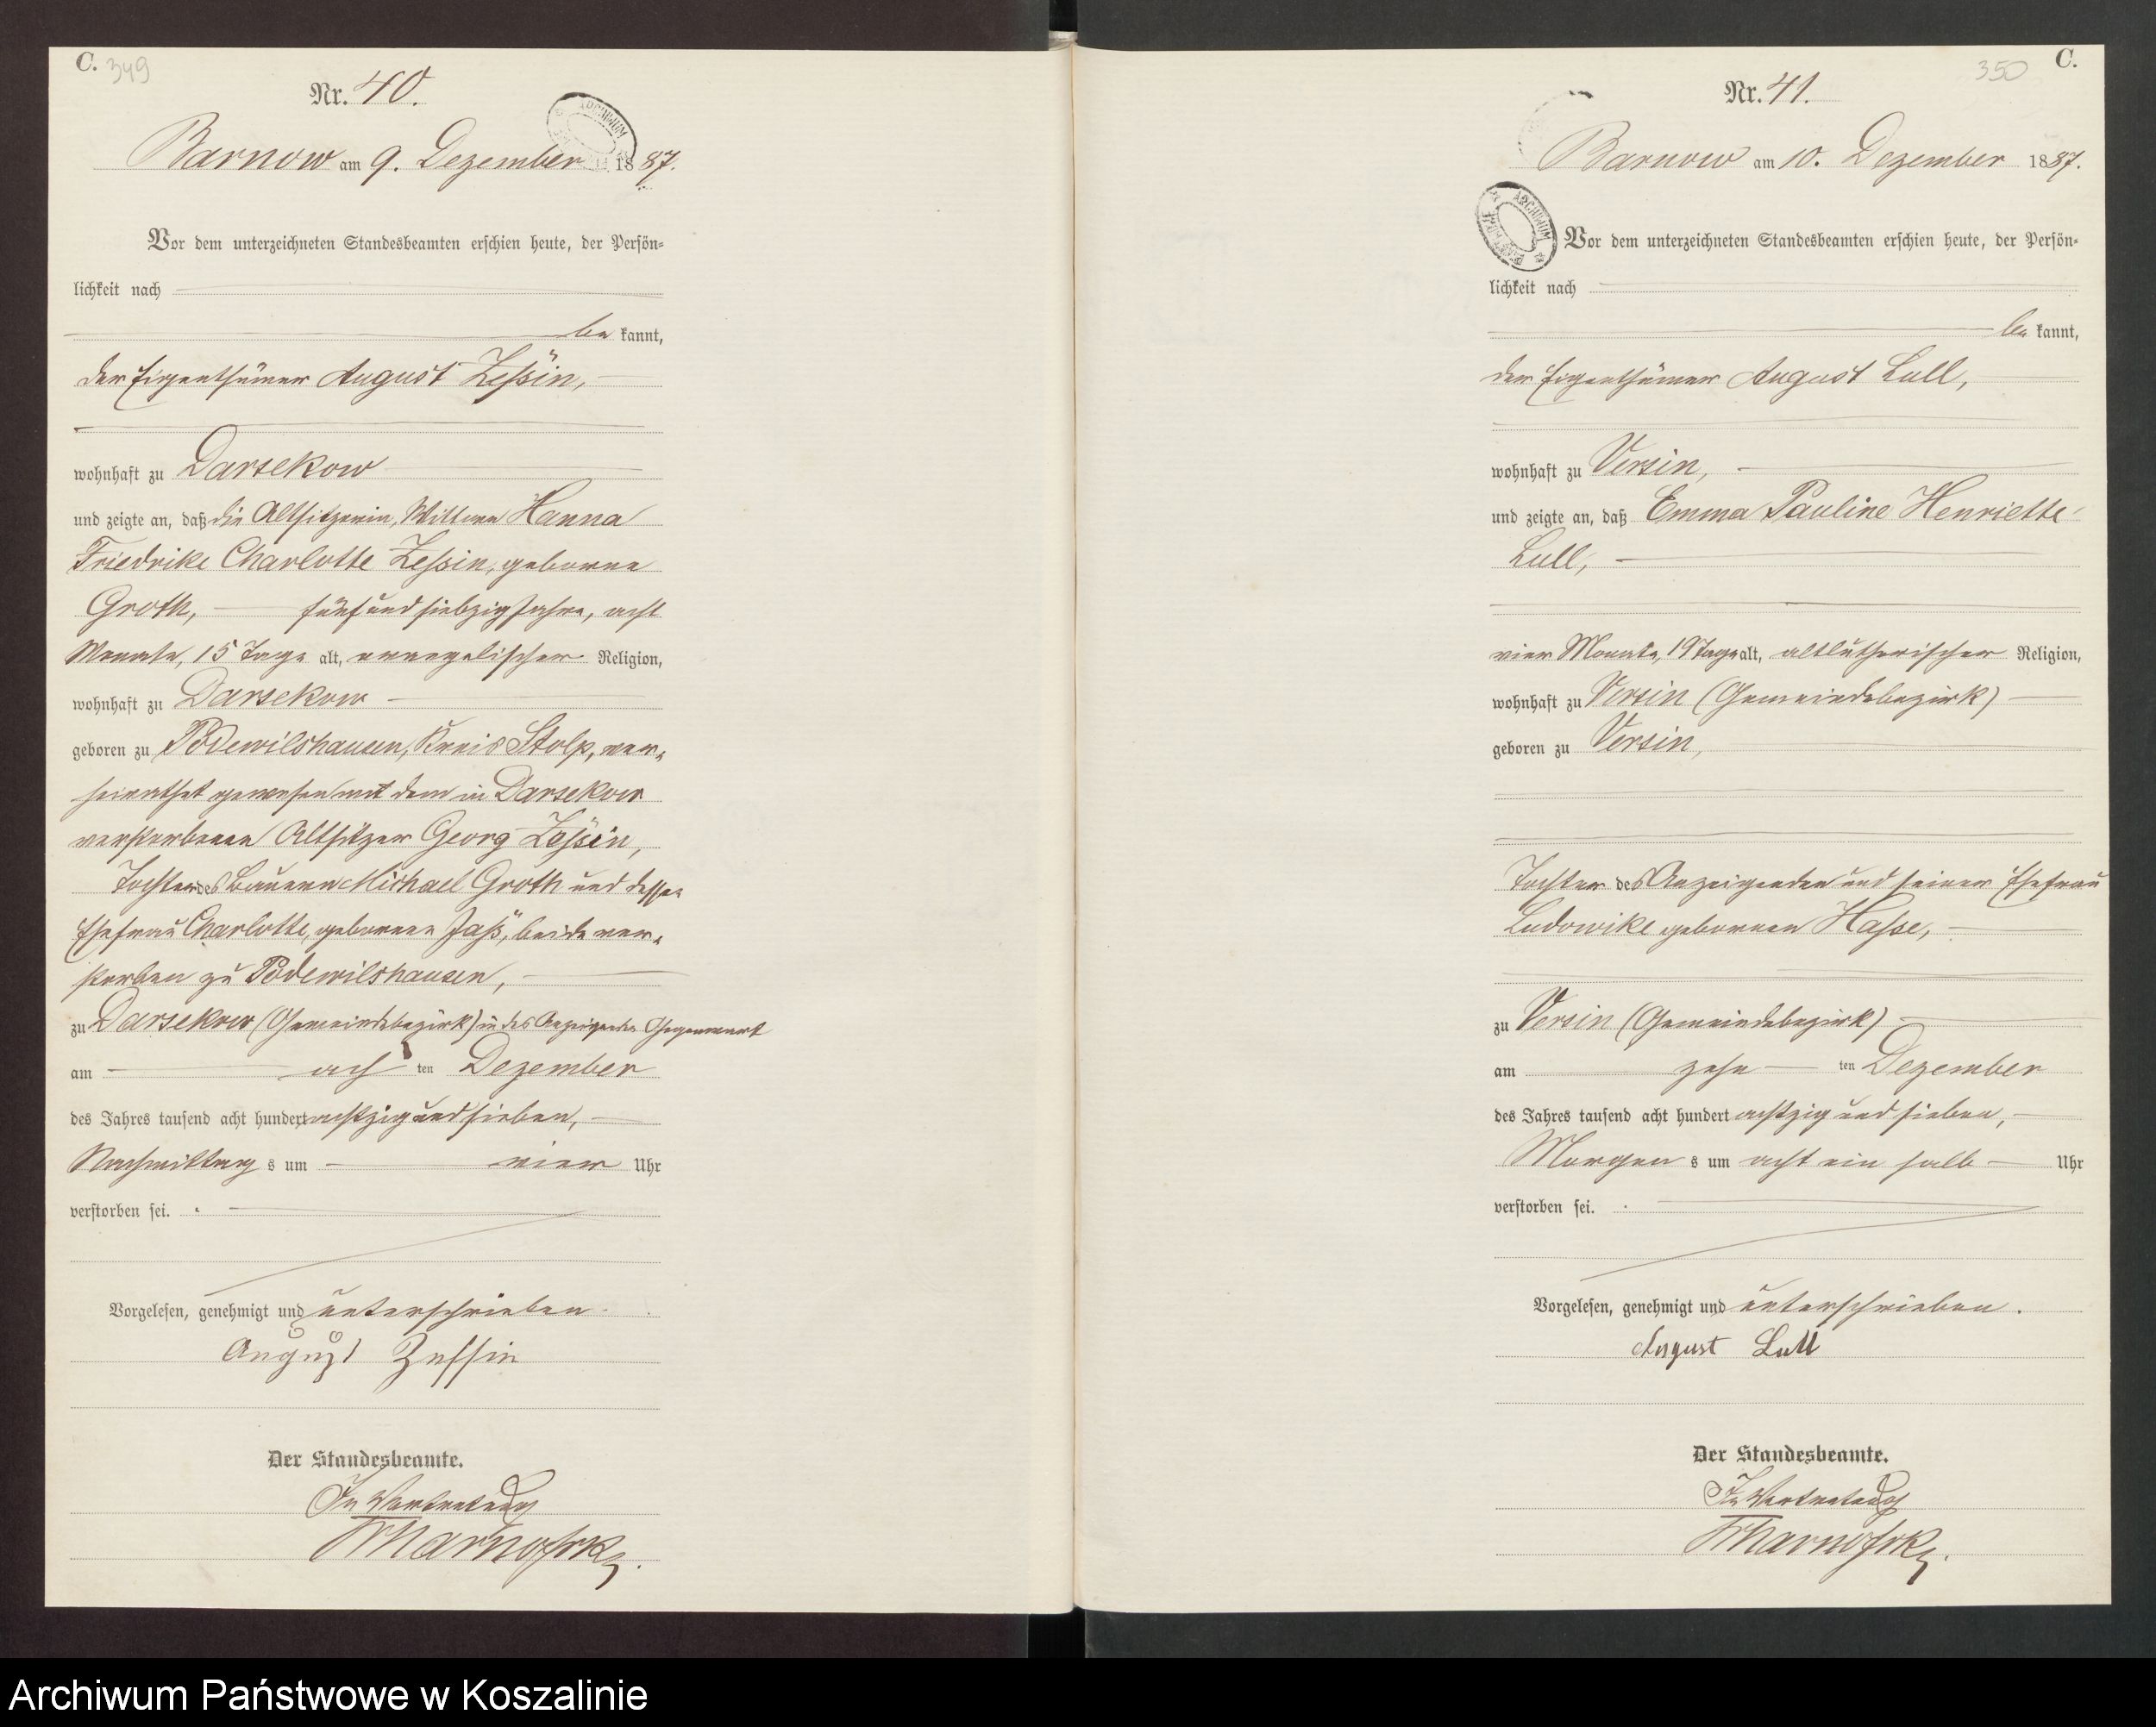 C. 349
Nr. 40.
Barnow am 9. Dezember 1887.
Vor dem unterzeichneten Standesbeamten erschien heute, der Persön-
lichkeit nach
be kannt,
der Eigenthümer August Zessin,
wohnhaft zu Darsekow
und zeigte an, daß die Altsitzerin, Wittwe Hanna
Friedrike Charlotte Zessin, geborene
Groth, fünf und siebzig Jahre, acht
Monate, 15 Tage alt, evangelischer Religion,
wohnhaft zu Darsekow
geboren zu Podewilshausen, Kreis Stolp, ver-
heirathet gewesen mit dem in Darsekow
verstorbenen Altsitzer Georg Zessin,
Tochter des Bauern Michael Groth und dessen
Ehefrau Charlotte, geborene Jass, beide ver-
storben zu Podewilshausen,
zu Darsekow (Gemeindebezirk) in des Anzeigenden Gegenwart
am ach ten Dezember
des Jahres tausend acht hundert achtzig und sieben,
Nachmittag s um vier Uhr
verstorben sei.
Vorgelesen, genehmigt und unterschrieben.
August Zessin
Der Standesbeamte.
In Vertretung
350 C.
Nr. 41.
Barnow am 10. Dezember 1887.
ARCHIWUM
Vor dem unterzeichneten Standesbeamten erschien heute, der Persön-
lichkeit nach
be kannt,
der Eigenthümer August Lull,
wohnhaft zu Versin,
und zeigte an, daß Emma Pauline Henriette
Lull,
vier Monate, 19 Tage alt, altlutherischer Religion,
wohnhaft zu Versin (Gemeindebezirk)
geboren zu Versin,
Tochter des Anzeigenden und seiner Ehefrau
Ludowike geborenen Hasse,
zu Versin (Gemeindebezirk)
am zehn ten Dezember
des Jahres tausend acht hundert achtzig und sieben,
Morgen s um acht ein halb Uhr
verstorben sei.
Vorgelesen, genehmigt und unterschrieben.
August Lull
Der Standesbeamte.
In Vertretung
Archiwum Państwowe w Koszalinie